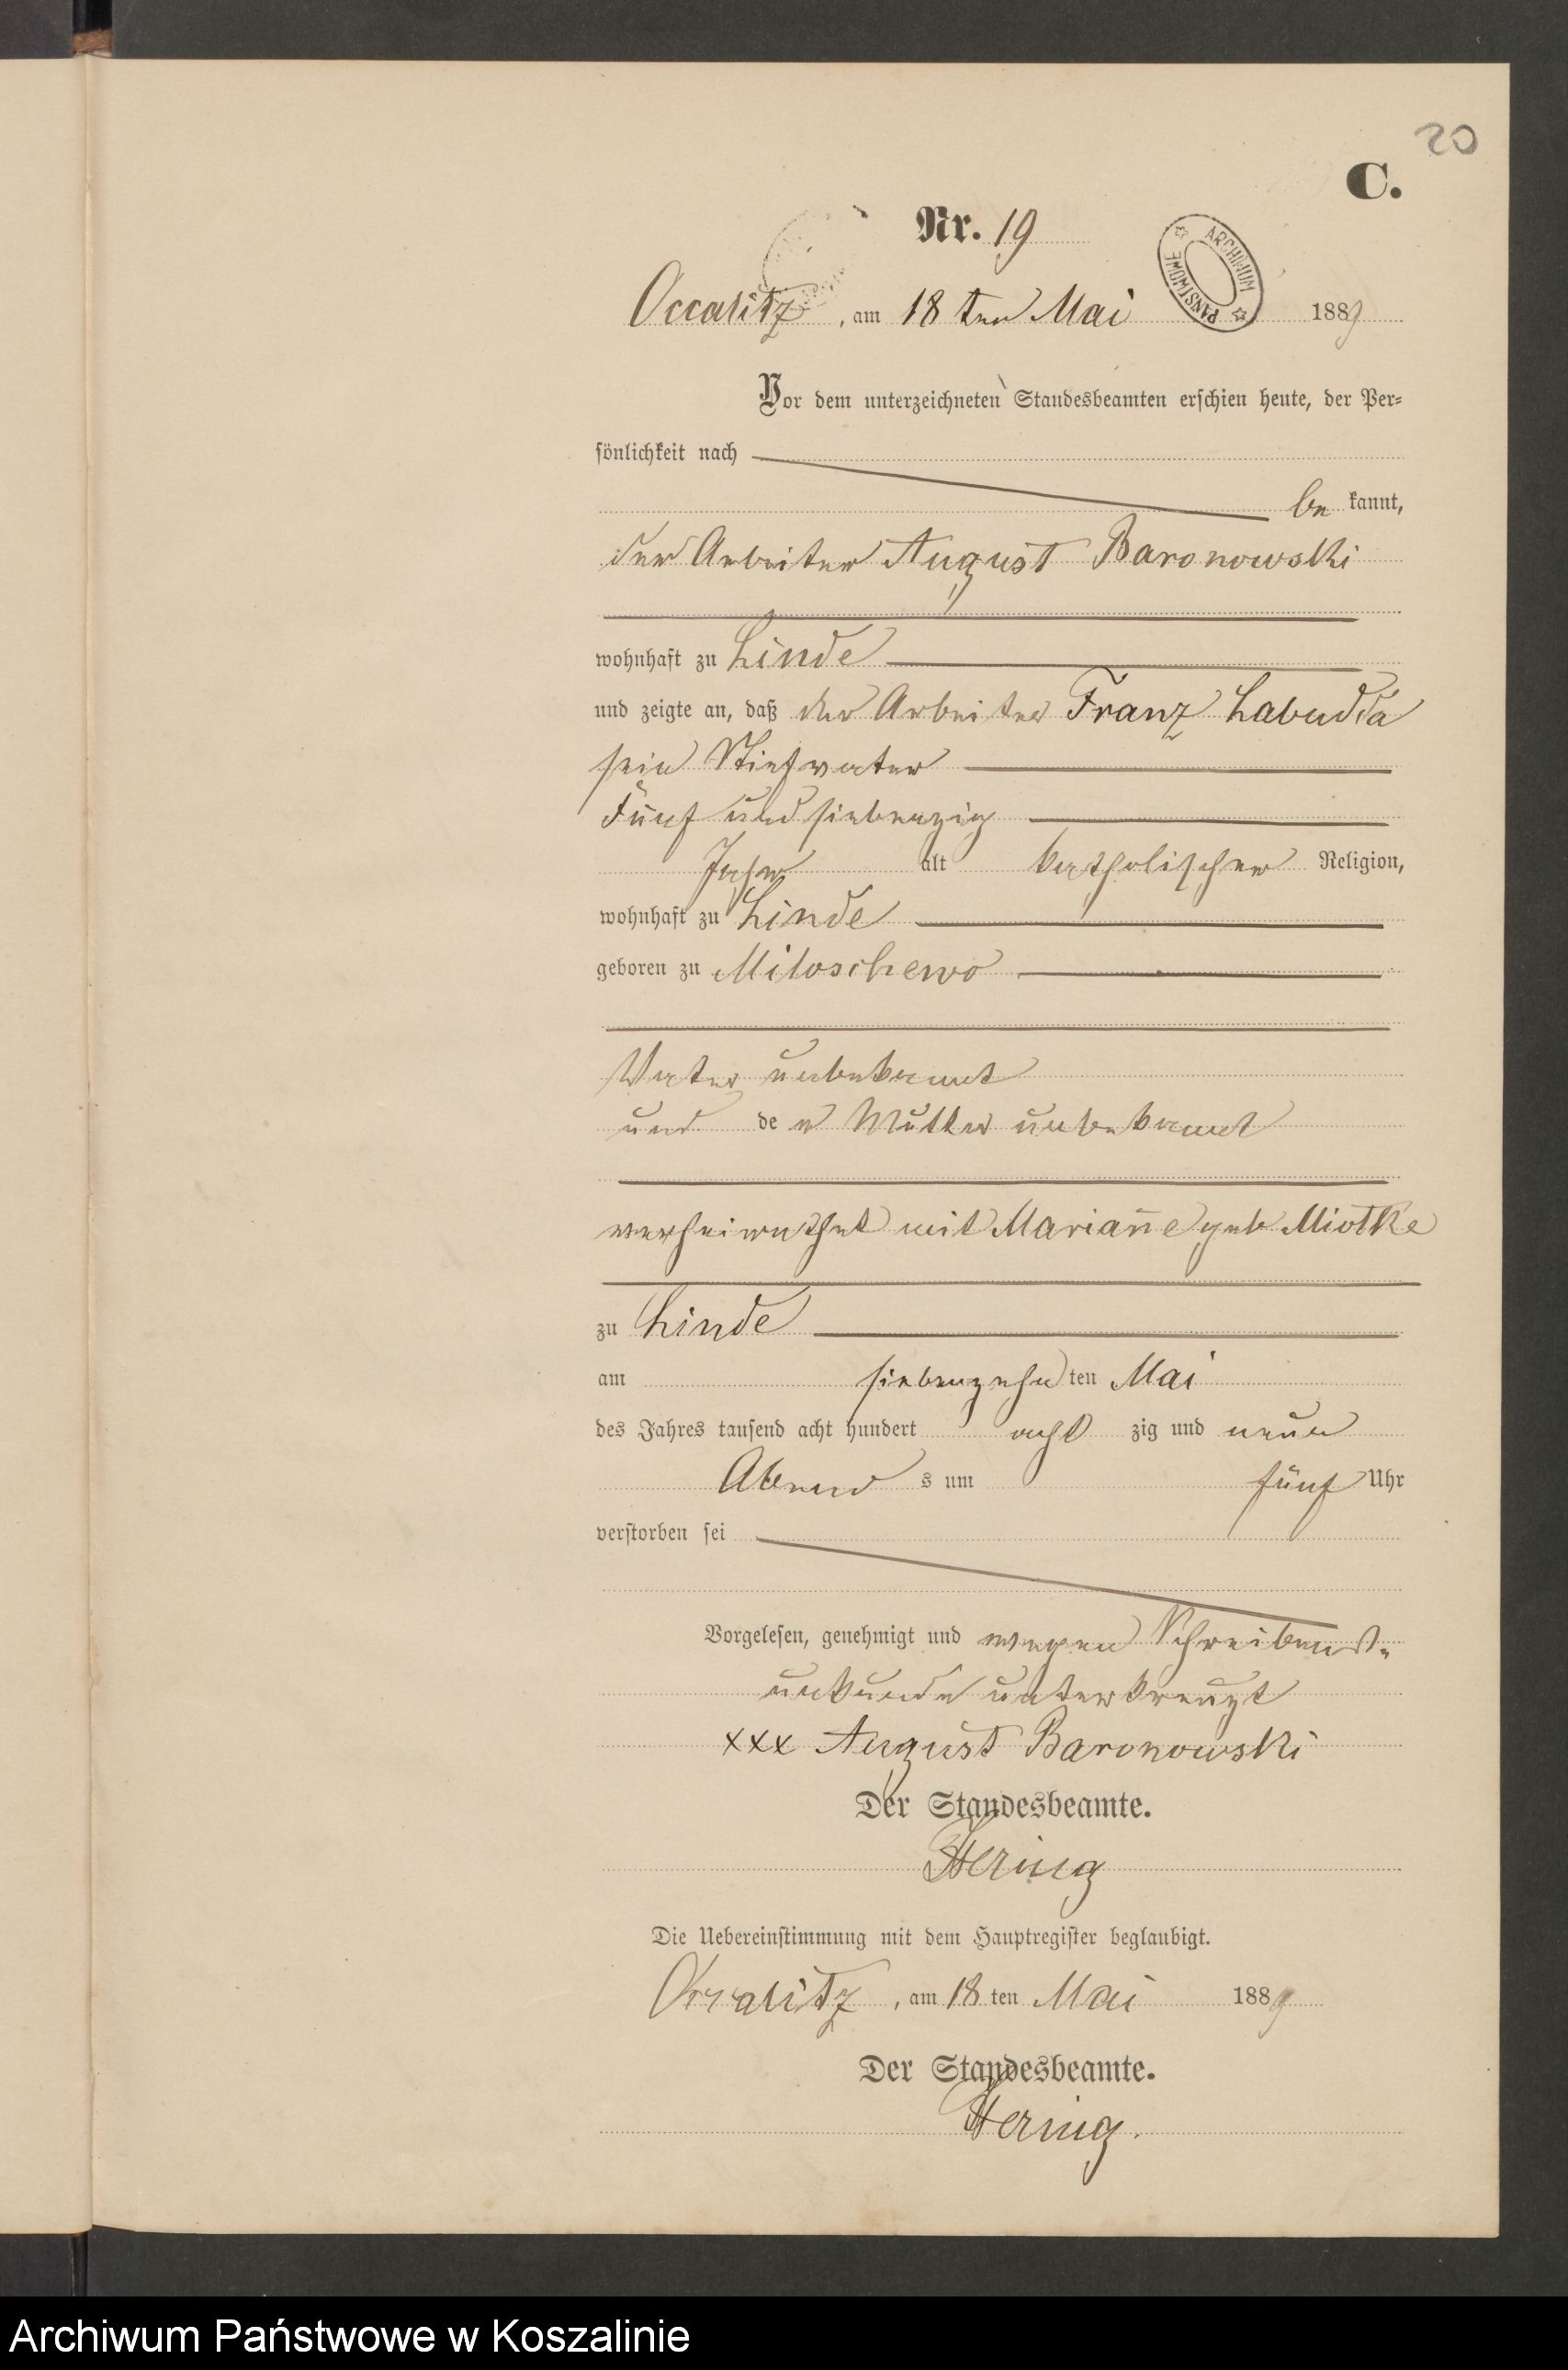 20
C.
Nr. 19
ARCHIWUM PAŃSTWOWE
Occalitz, am 18 ten Mai 1889
Vor dem unterzeichneten Standesbeamten erschien heute, der Per-
sönlichkeit nach
be kannt,
der Arbeiter August Baronowski
wohnhaft zu Linde
und zeigte an, daß der Arbeiter Franz Labudda
sein Stiefvater
Fünf und siebenzig
Jahr alt katholischer Religion,
wohnhaft zu Linde
geboren zu Miloschewo
Vater unbekannt
und de r Mutter unbekannt
verheirathet mit Marian̄e geb Miotke
zu Linde
am siebenzehn ten Mai
des Jahres tausend acht hundert acht zig und neun
Abend s um fünf Uhr
verstorben sei
Vorgelesen, genehmigt und wegen Schreibens-
unkunde unterkreuzt
xxx August Baronowski
Der Standesbeamte.
Hering
Die Uebereinstimmung mit dem Hauptregister beglaubigt.
Occalitz, am 18 ten Mai 1889
Der Standesbeamte.
Hering.
Archiwum Państwowe w Koszalinie